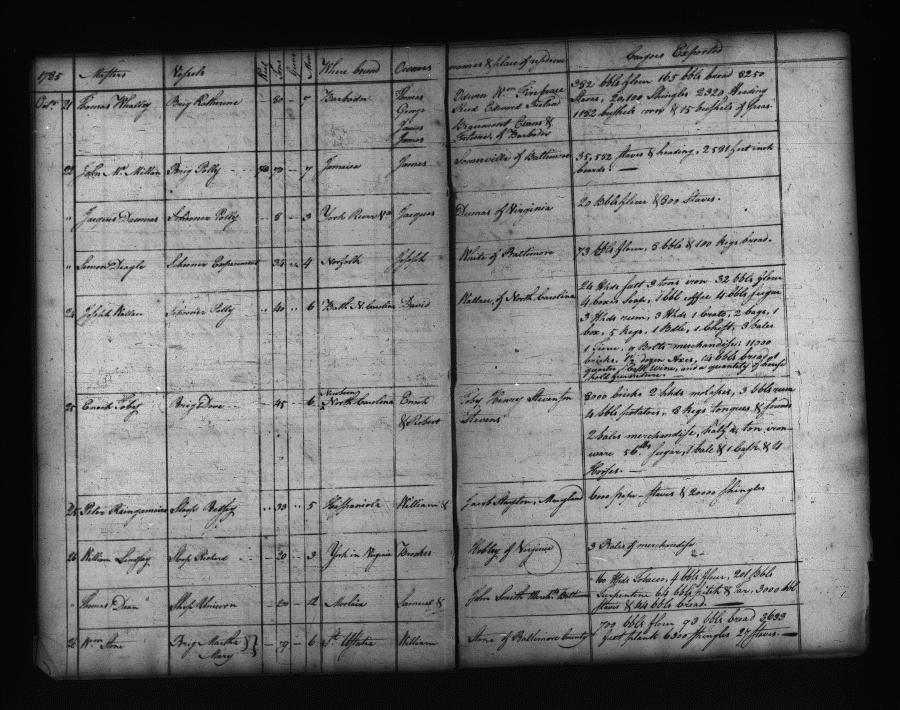 1785 Masters Vessels Tons Guns Men Where bound Owners names & place of residence Cargoes Exported
Octr. 21 Thomas Whalley Brig Katharine 80 7 Barbadoes Thomas
George
James
James
Beaumont Evans &
of Barbados
352 bbls flour 165 bbls bread 8250
Staves, 20,100 Shingles 2320 Heading
1152 bushels corn & 15 bushels of Peas
22 John Mc. Millan Brig Polly 7 Jamaica James Somerville of Baltimore 35,552 staves & heading, 2591 feet inch
boards.
" Jacques Dumas Schooner Polly 8 3 York River Va Jacques Dumas of Virginia 20 Bbls flour & 300 Staves.
" Simon Deagle Schooner Experiment 35 4 Norfolk Joseph White of Baltimore 73 bbls flour, 5 bbls & 100 Kegs bread.
24 Joseph Wallace Schooner Polly 40 6 Bath N. Carolina David Wallace, of North Carolina 24 Hhds salt 3 tons iron 32 bbls flour
4 boxes Soap, 1 bbl coffee 4 bbls sugar
3 Hhds rum, 3 Hhds 1 Crate, 2 bags, 1
box, 5 Kegs, 1 Bdle, 1 Chest, 3 bales
1 Tierce, 4 Bolts merchandise; 11000
bricks, 1/2 dozen Axes, 14 bbls bread
quarter Cask Wine, and a quantity of house
hold furniture.
25 Enoch Toby Brig Dove 45 6 Newbern
North Carolina Enoch
& Robert Toby Henry Stevenson
Stevens 8000 bricks 2 hhds molasses, 3 bbls rum
4 bbls potatoes, 8 Kegs tongues & sounds
2 bales merchandise, half a ton iron
ware 56 lbs sugar, 1 bale & 1 cask & 4
Horses.
25 Peter Raingamoire Sloop Betsey 33 5 Hispaniola William & Jacob Slayton, Maryland 6000 pipe staves & 20000 shingles
26 William Lindsey Sloop Richard 20 3 York in Virginia Brookes Hobley of Virginia 3 Bales of merchandise
" Thomas Dean Ship Unicorn 200 12 Samuel & John Smith Merchts. Balt 160 Hhds Tobacco, 4 bbls flour, 201 bbls
Turpentine 64 bbls pitch & tar, 3000 bbl
staves & 44 bbls bread.
26 Wm. Stone Brig Martha
Mary 79 6 St. Ustatia William Stone of Baltimore County 709 bbls flour 93 bbls bread 3633
feet plank 6300 shingles 27 staves.